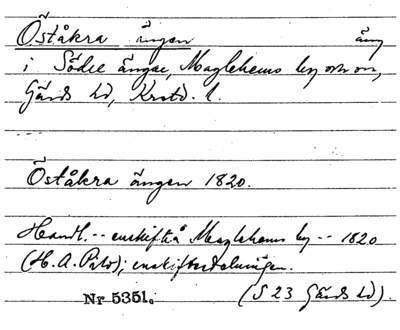 Öståkra ängen äng
i Södre ängar, Maglehems by och sn,
Gärds hd, Krstd. l.
Öståkra ängen 1820.
Handl. -- enskifte å Maglehems by -- 1820
(H. A. ); enskiftesdelningen.
Nr 5351. (S 23 Gärds hd).